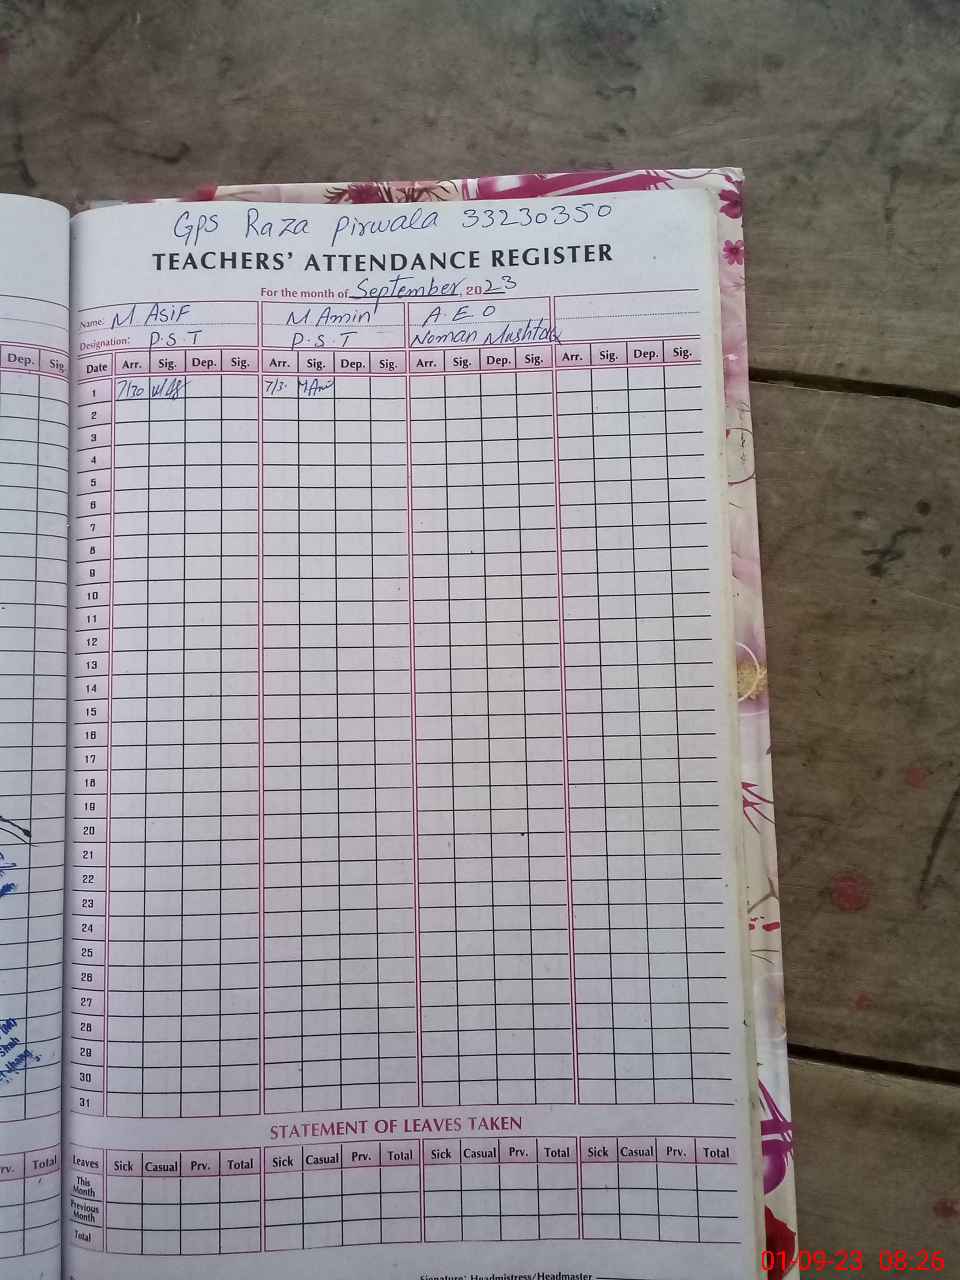 GPS Raza Pirwala 33230350
TEACHERS' ATTENDANCE REGISTER
For the month of September, 2023
Name: M Asif M Amin A.E.O
Designation: P.S.T P.S.T Noman Mushtaq
Dep. Sig. Date Arr. Sig. Dep. Sig. Arr. Sig. Dep. Sig. Arr. Sig. Dep. Sig. Arr. Sig. Dep. Sig.
1 7/30 7/3
2
3
4
5
6
7
8
9
10
11
12
13
14
15
16
17
18
19
20
21
22
23
24
25
26
27
28
29
30
31
STATEMENT OF LEAVES TAKEN
Prv. Total Leaves Sick Casual Prv. Total Sick Casual Prv. Total Sick Casual Prv. Total Sick Casual Prv. Total
This Month
Previous Month
Total
Signature: Headmistress/Headmaster
01-09-23 08:26